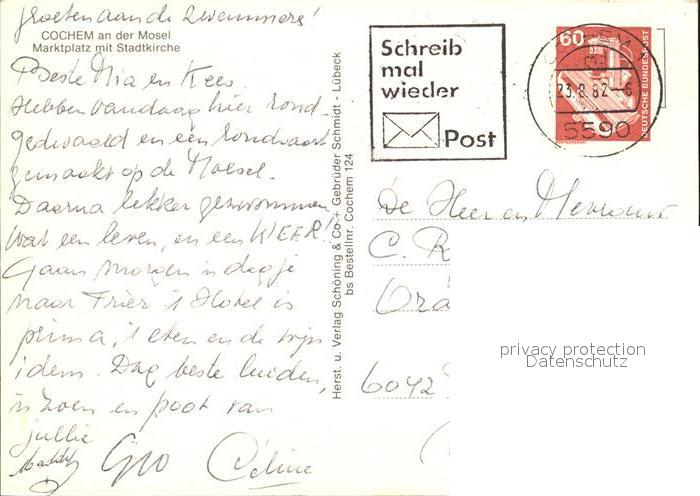 groeten aan de zwemmers!
COCHEM an der Mosel
Marktplatz mit Stadtkirche
Beste Mia en Kees
Hebben vandaag hier rond-
gedwaald en een rondvaart
gemaakt op de Moesel.
Daarna lekker gezwommen,
wat een leven, en een WEER!
Gaan morgen 'n dagje
naar Trier 't Hotel is
prima, 't eten en de wijn
idem. Dag beste luiden,
'n zoen en poot van
jullie
Céline
Herst. u. Verlag Schöning & Co + Gebrüder Schmidt - Lübeck
bs Bestellnr. Cochem 124
Schreib
mal
wieder
Post
60
DEUTSCHE BUNDESPOST
23.8.82-6
5590
De Heer en Mevrouw
C. R
6042
privacy protection
Datenschutz